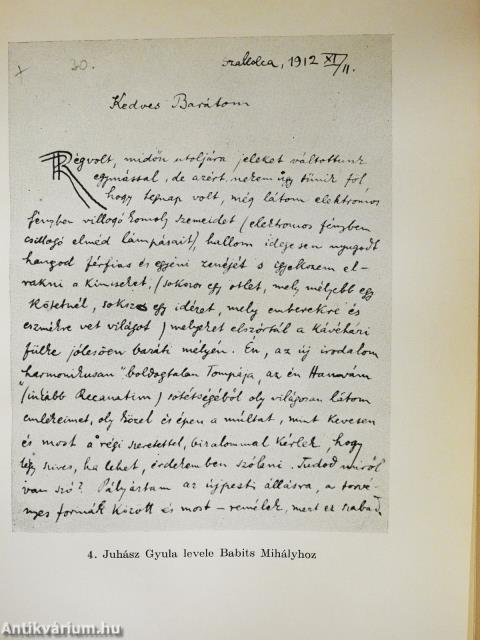 + 20.
Szakolca, 1912 XI/11.
Kedves Barátom
Régvolt, midőn utoljára jeleket váltottunk
egymással, de azért nekem úgy tünik föl,
hogy tegnap volt, még látom elektromos
fényben villogó komoly szemeidet (elektromos fényben
csillogó elméd lámpásait), hallom idegesen nyugodt
hangod férfias és egyéni zenéjét s igyekszem el-
rakni a kincseket, (sokszor egy ötlet, mely mélyebb egy
kötetnél, sokszor egy idézet, mely emberekre és
eszmékre vet világot) melyeket elszórtál a kávéházi
fülke jólesően baráti mélyén. Én, az új irodalom
"harmonikusan" boldogtalan Tompája, az én Hanvám
(inkább Recanatim) sötétségéből oly világosan látom
emlékeimet, oly közel és épen a múltat, mint kevesen
és most a régi szeretettel, bizalommal kérlek, hogy
légy szives, ha lehet, érdekemben szólani. Tudod miről
van szó? Pályáztam az újpesti állásra, a törvé-
nyes formák között és most – remélek, mert ez szabad
4. Juhász Gyula levele Babits Mihályhoz
Antikvárium.hu